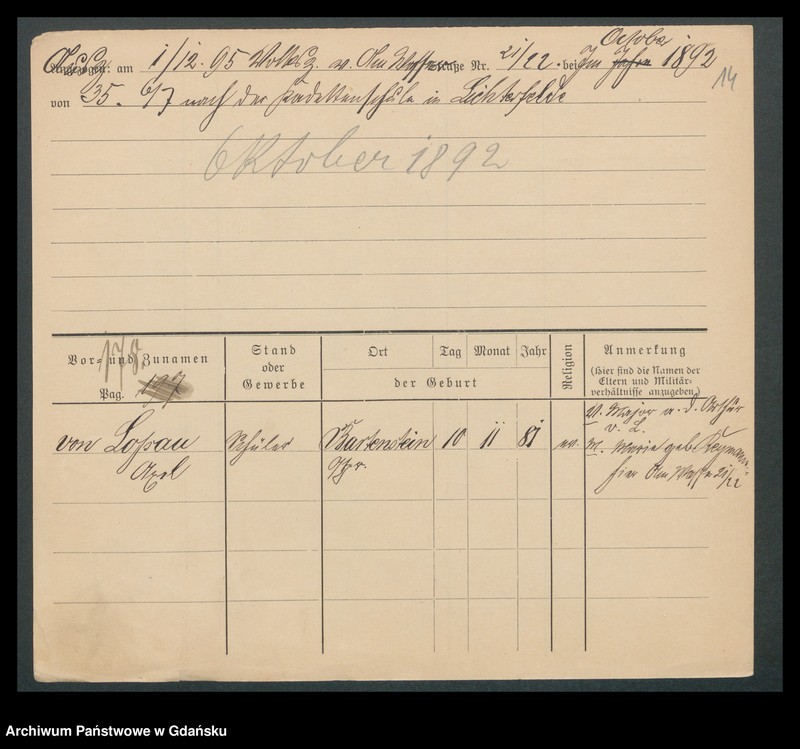 Angezogen: am 1/12. 95 Volksz. v. Am Wasser Straße Nr. 21/22. bei Im Jahre October 1892
14
von 35. 6/7 nach der Kadettenschule in Lichterfelde
Oktober 1892
Vor- und Zunamen
178.
Pag. 197
Stand
oder
Gewerbe
Ort Tag Monat Jahr
der Geburt
Religion
Anmerkung
(Hier sind die Namen der
Eltern und Militär-
verhältnisse anzugeben.)
von Lossau
Axel
Schüler
Bartenstein 10 11 81
Opr.
ev.
V. Major a. D. Arthur
v. L.
M. Marie geb.
hier Am Wasser 21/22
Archiwum Państwowe w Gdańsku